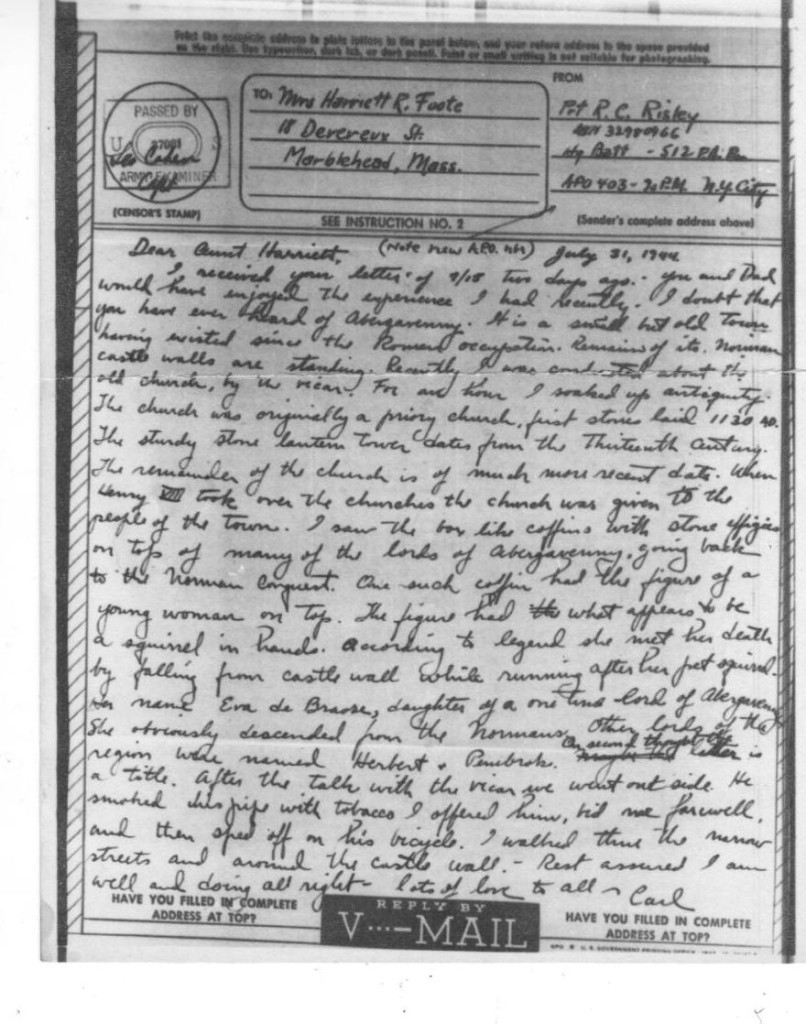 Print the complete address in plain letters in the panel below, and your return address in the space provided
on the right. Use typewriter, dark ink, or dark pencil. Faint or small writing is not suitable for photographing.
FROM
PASSED BY
U S
37081
ARMY EXAMINER
Capt
(CENSOR'S STAMP)
TO: Mrs Harriett R. Foote
18 Devereux St.
Marblehead, Mass.
SEE INSTRUCTION NO. 2
Pvt R. C. Risley
ASN 32980966
Hq Batt - 512 F.A. Bn
APO 403 - % P.M. N.Y. City
(Sender's complete address above)
Dear Aunt Harriett, (Note new A.P.O. nbr) July 31, 1944
I received your letter of 7/15 two days ago. - you and Dad
would have enjoyed the experience I had recently. I doubt that
you have ever heard of Abergavenny. It is a small but old town
having existed since the Roman occupation. Remains of its Norman
castle walls are standing. Recently I was conducted about the
old church, by the vicar. For an hour I soaked up antiquity.
The church was originally a priory church, first stones laid 1130 AD.
The sturdy stone lantern tower dates from the Thirteenth Century.
The remainder of the church is of much more recent date. When
Henry VIII took over the churches the church was given to the
people of the town. I saw the box like coffins with stone effigies
on top of many of the lords of Abergavenny, going back
to the Norman Conquest. One such coffin had the figure of a
young woman on top. The figure had what appears to be
a squirrel in hands. According to legend she met her death
by falling from castle wall while running after her pet squirrel.
Her name Eva de Braose, daughter of a one time lord of Abergavenny
She obviously descended from the Normans. Other lords of the
region were named Herbert & Pembrok. On second thought the latter is
a title. After the talk with the vicar we went out side. He
smoked his pipe with tobacco I offered him, bid me farewell,
and then sped off on his bicycle. I walked thru the narrow
streets and around the castle wall. - Rest assured I am
well and doing all right - lots of love to all - Carl
HAVE YOU FILLED IN COMPLETE
ADDRESS AT TOP?
REPLY BY
V···—MAIL
HAVE YOU FILLED IN COMPLETE
ADDRESS AT TOP?
U. S. GOVERNMENT PRINTING OFFICE